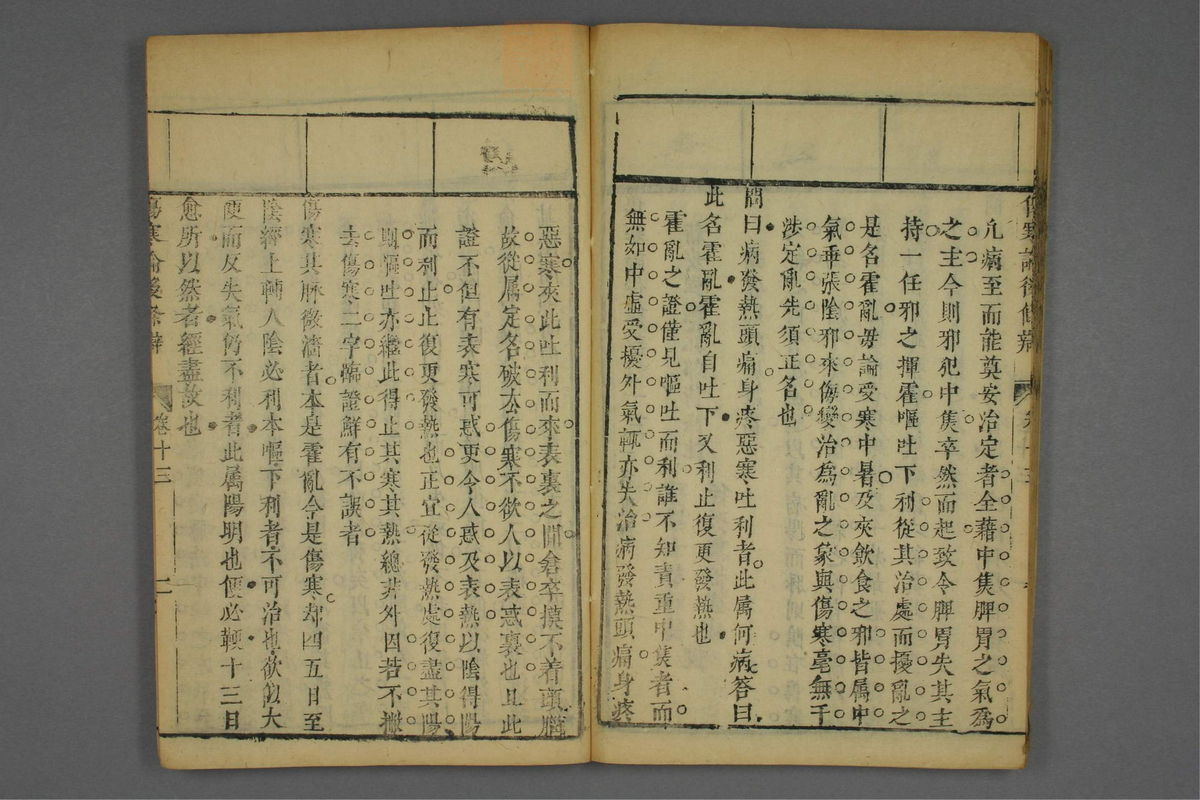 傷寒論後條辨
卷十三
凢病至而能奠安治定者全藉中焦脾胃之氣爲
之主今則邪犯中焦卒然而起致令脾胃失其主
持一任邪之揮霍嘔吐下利從其治處而擾亂之
是名霍亂毋論受寒中暑及夾飲食之邪皆属中
氣乖張陰邪來侮變治爲亂之象與傷寒毫無干
涉定亂先須正名也
問曰病發熱頭痛身疼惡寒吐利者此属何病答曰
此名霍亂霍亂自吐下又利止復更發熱也
霍亂之證僅見嘔吐而利誰不知責重中焦者而
無如中虛受擾外氣輒亦失治病發熱頭痛身疼
惡寒夾此吐利而來表裏之間倉卒摸不着頭腦
故從属定名破去傷寒不欲人以表惑裏也且此
證不但有表寒可惑更令人惑及表熱以陰得陽
而利止止復更發熱也正宜從發熱處復盡其陽
則嘔吐亦繼此得止其寒其熱總非外因若不撇
去傷寒二字臨證鮮有不誤者
傷寒其脉微濇者本是霍亂今是傷寒却四五日至
陰經上轉入陰必利本嘔下利者不可治也欲似大
便而反失氣仍不利者此属陽明也便必鞕十三日
愈所以然者經盡故也
傷寒論後條辨
卷十三
二